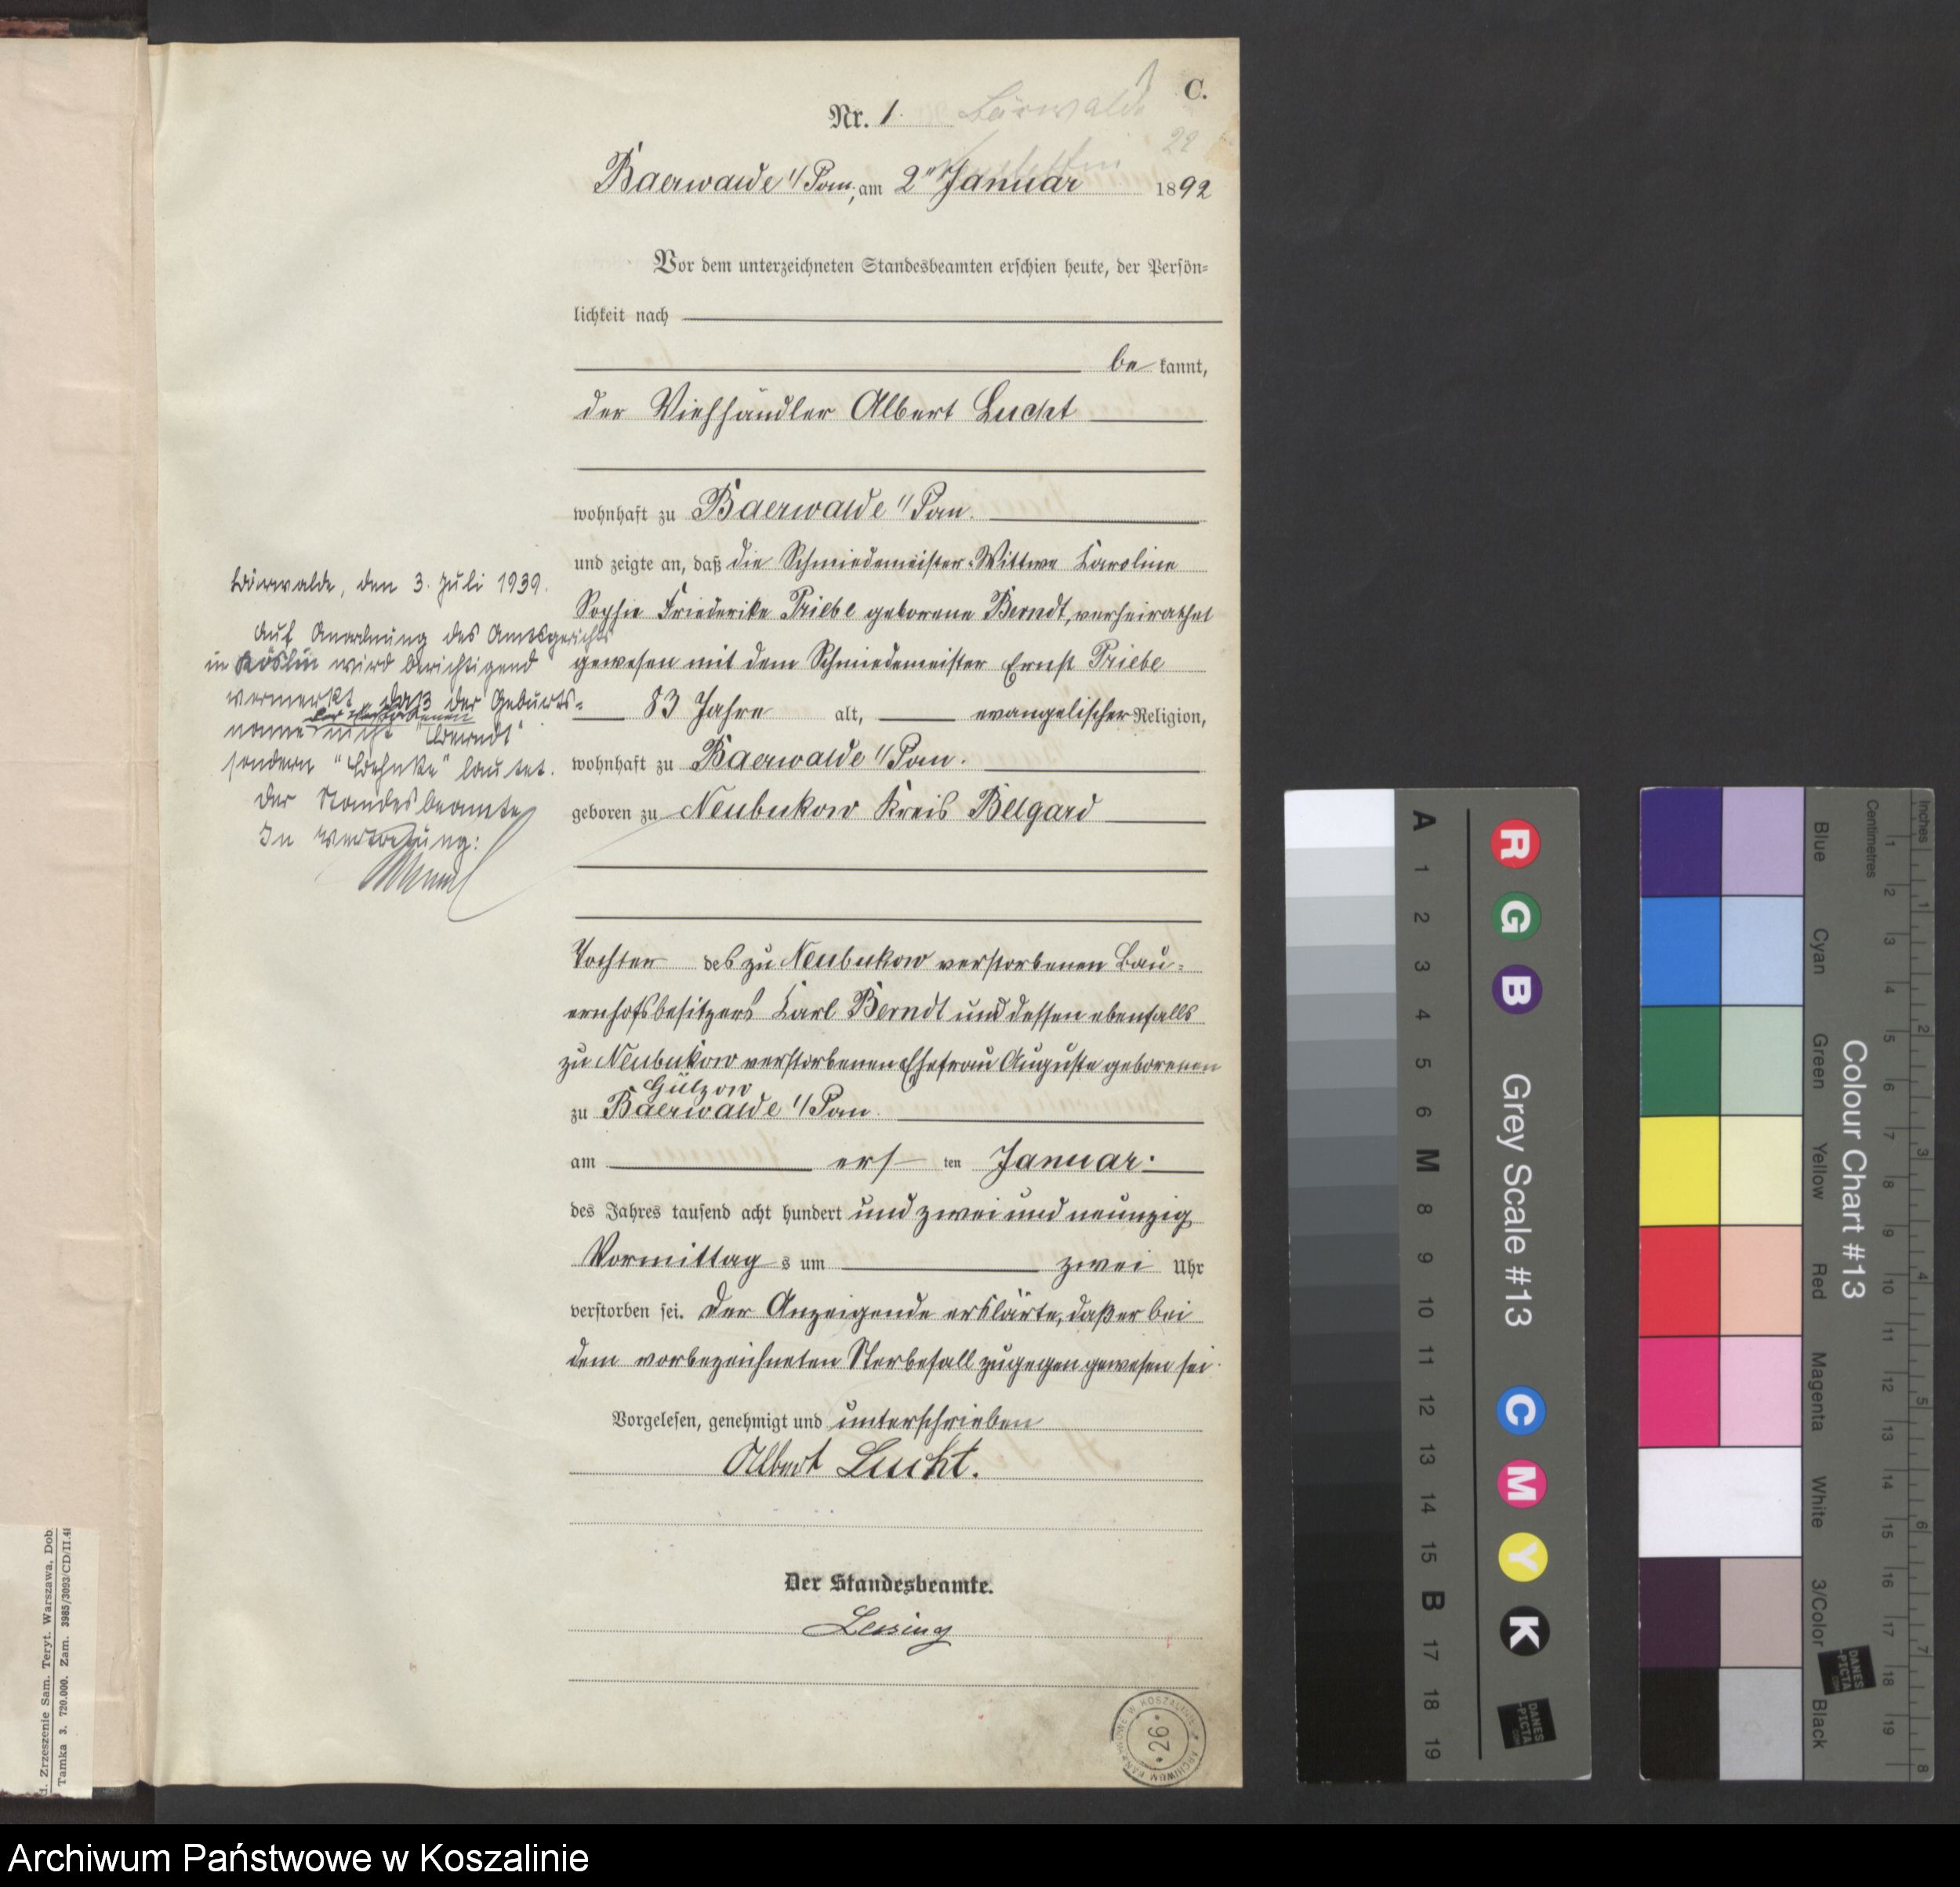 C.
Nr. 1. Bärwalde
22
Baerwalde i/Pom., am 2ten Januar 1892
Vor dem unterzeichneten Standesbeamten erschien heute, der Persön=
lichkeit nach
be kannt,
der Viehhändler Albert Lucht
wohnhaft zu Baerwalde i/Pom.
und zeigte an, daß die Schmiedemeister-Wittwe Karoline
Sophie Friederike Priebe geborene Berndt, verheirathet
gewesen mit dem Schmiedemeister Ernst Priebe
83 Jahre alt, evangelischer Religion,
wohnhaft zu Baerwalde i/Pom.
geboren zu Neubukow Kreis Belgard
Tochter des zu Neubukow verstorbenen Bau=
ernhofsbesitzers Karl Berndt und dessen ebenfalls
zu Neubukow verstorbenen Ehefrau Auguste geborenen
Gülzow
zu Baerwalde i/Pom.
am ers ten Januar
des Jahres tausend acht hundert und zwei und neunzig
Vormittag s um zwei Uhr
verstorben sei. Der Anzeigende erklärte, daß er bei
dem vorbezeichneten Sterbefall zugegen gewesen sei.
Vorgelesen, genehmigt und unterschrieben
Albert Lucht.
Der Standesbeamte.
Lessing
Bärwalde, den 3. Juli 1939.
Auf Anordnung des Amtsgerichts
in Köslin wird berichtigend
vermerkt, daß der Geburts=
der Verstorbenen
name nicht "Berndt"
sondern "Behnke" lautet.
Der Standesbeamte
In Vertretung:
ARCHIWUM PAŃSTWOWE W KOSZALINIE
* 26 *
d. Zrzeszenie Sam. Teryt. Warszawa, Dob.
Tamka 3. 720.000. Zam. 3985/3093/CD/II.48
A 1 2 3 4 5 6 M 8 9 10 11 12 13 14 15 B 17 18 19
R G B Grey Scale #13 C M Y K
DANES
-PICTA
.COM
Blue Cyan Green Yellow Red Magenta White 3/Color Black
Colour Chart #13
DANES
-PICTA
.COM
Centimetres 1 2 3 4 5 6 7 8 9 10 11 12 13 14 15 16 17 18 19
Inches 1 2 3 4 5 6 7 8
Archiwum Państwowe w Koszalinie